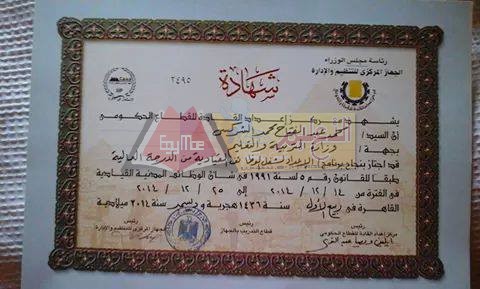 رئاسة مجلس الوزراء
الجهاز المركزى للتنظيم والإدارة
٢٤٩٥
شهادة
يشهد مركز إعداد القادة للقطاع الحكومى
أن السيد / أحمد عبد الفتاح محمد الشركسى
بجهة / وزارة التربية والتعليم
قد اجتاز بنجاح برنامج الإعداد لشغل الوظائف القيادية من الدرجة العالية
طبقا للقانون رقم ٥ لسنة ١٩٩١ فى شأن الوظائف المدنية القيادية
فى الفترة من ١٤ / ١٢ / ٢٠١٤ إلى ٢٥ / ١٢ / ٢٠١٤
القاهرة فى ربيع الأول سنة ١٤٣٦ هجرية و ديسمبر سنة ٢٠١٤ ميلادية
رئيس
مركز إعداد القادة للقطاع الحكومى
رئيس
قطاع التدريب بالجهاز
رئيس
الجهاز المركزى للتنظيم والإدارة